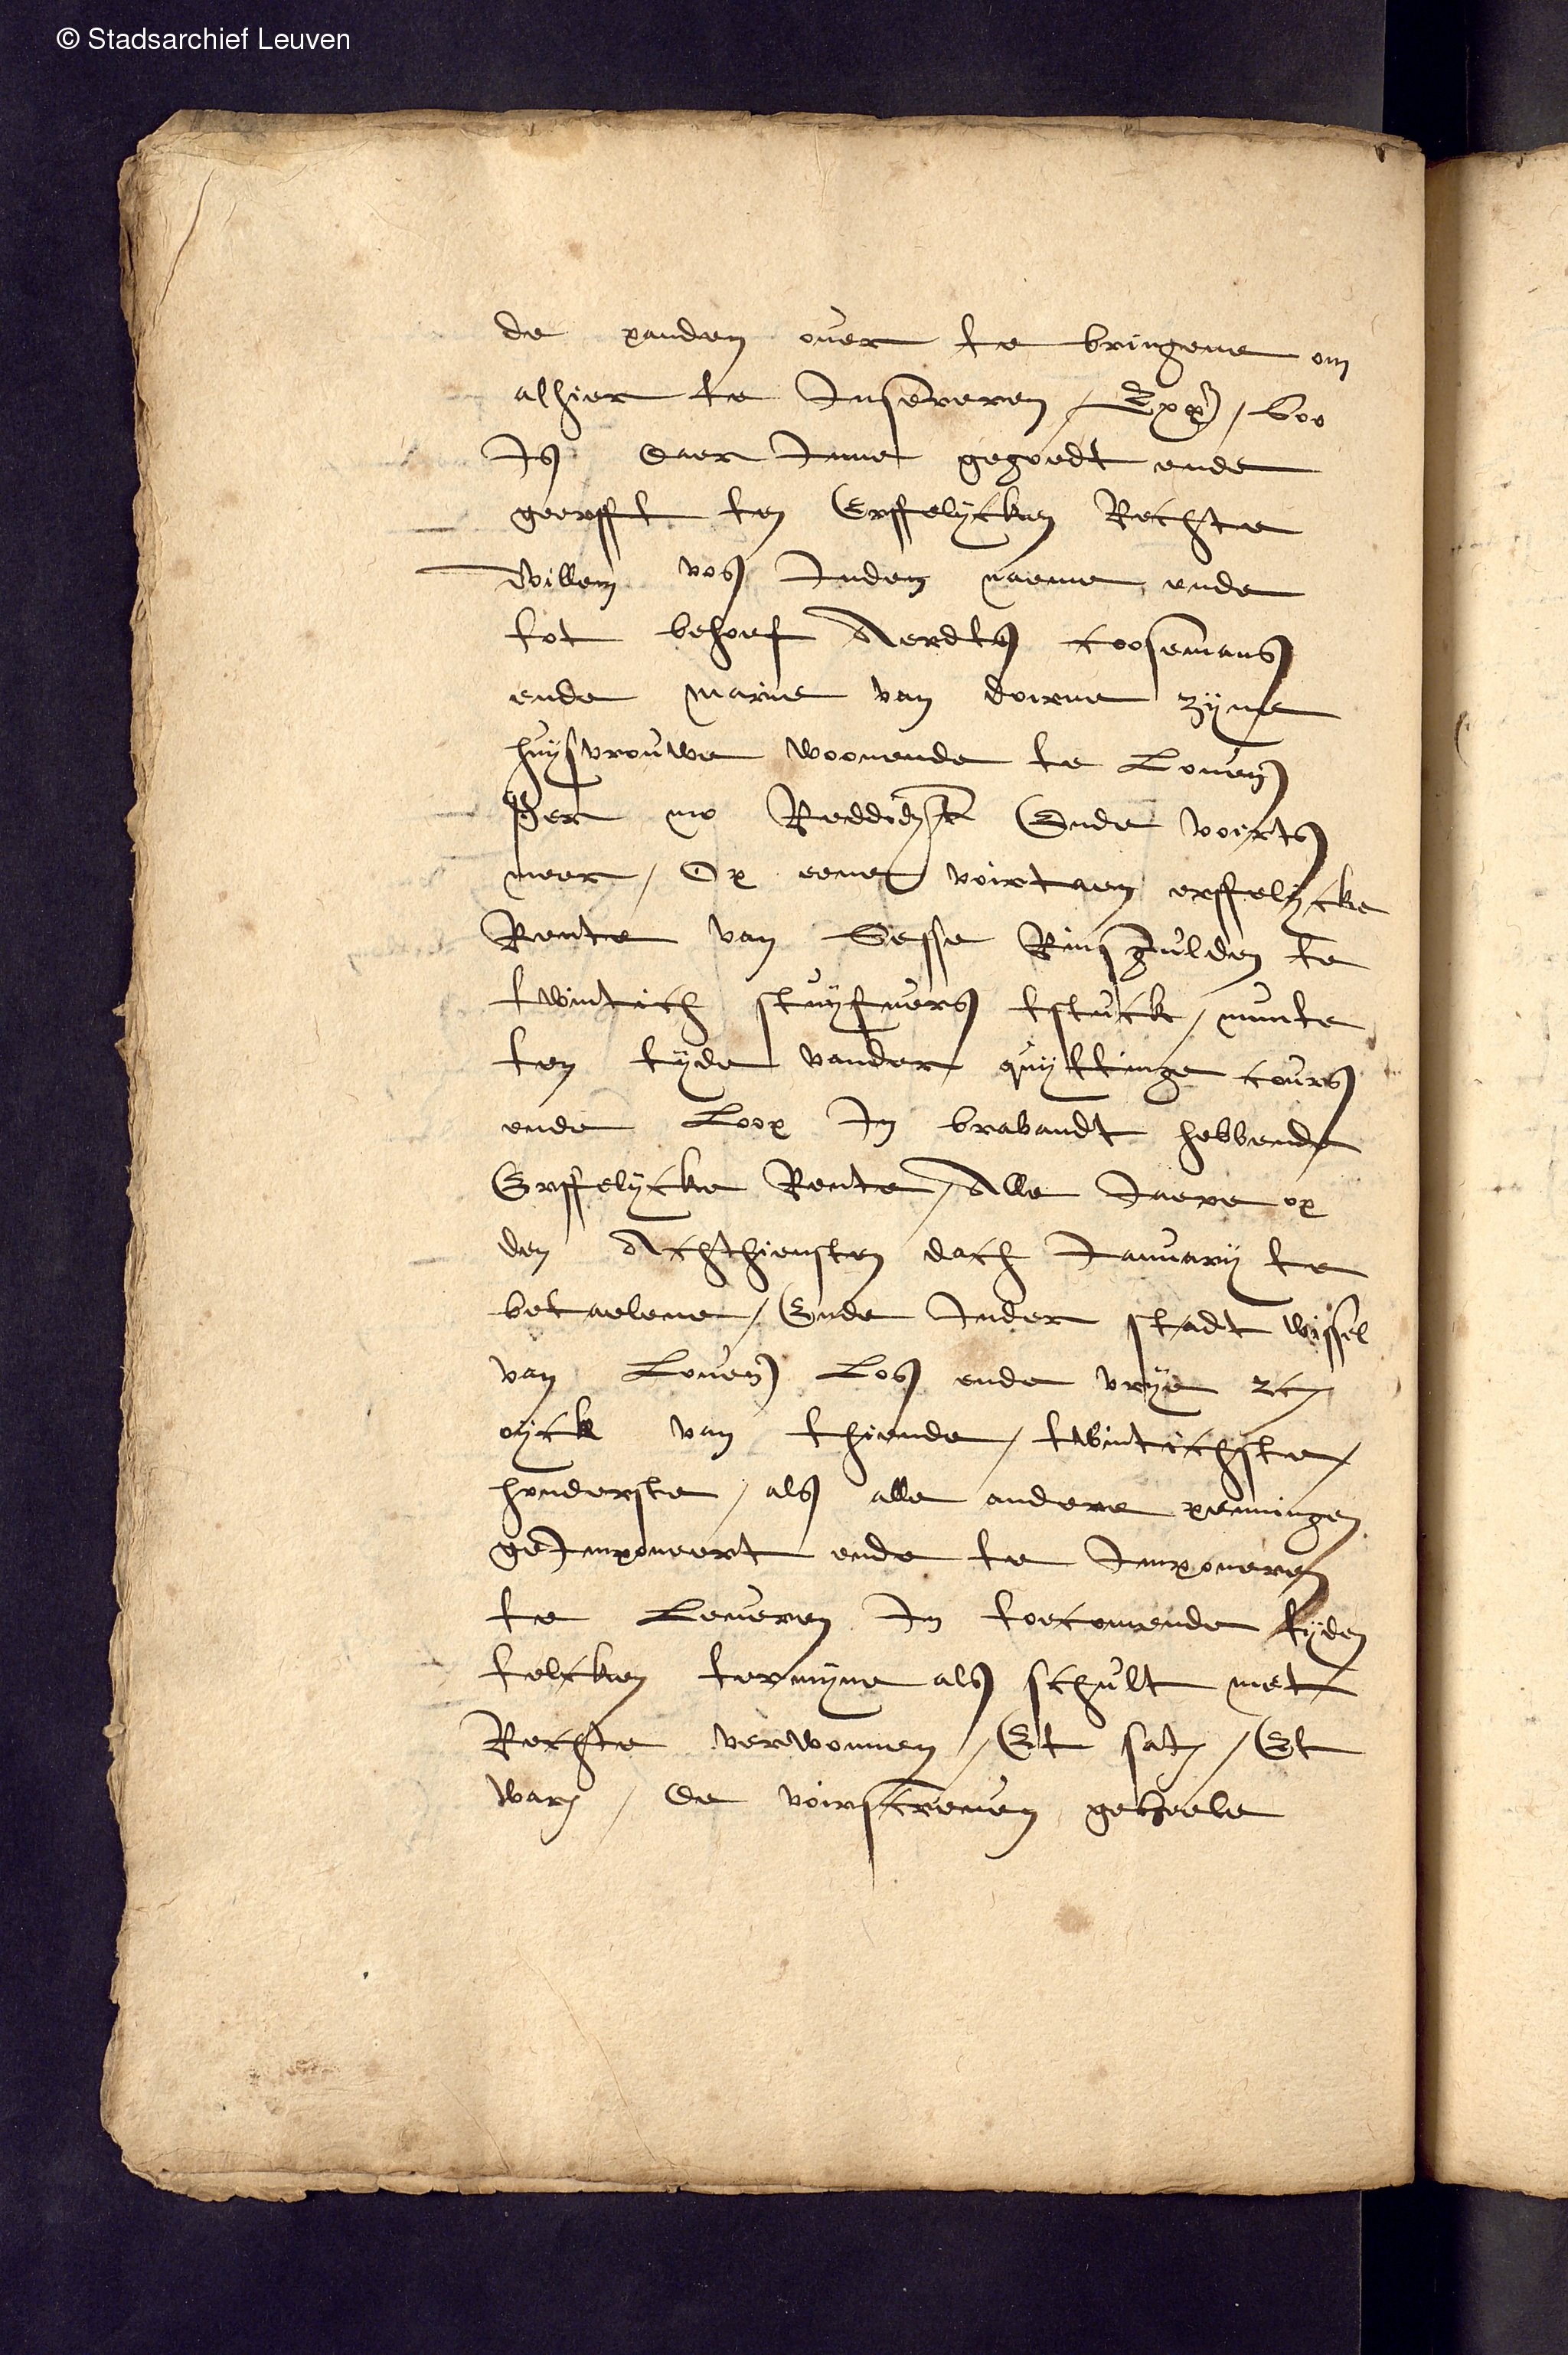 © Stadsarchief Leuven
de panden over te bringene om
alhier te Insereren / Expr / Soo
Is daer Inne gegoedt ende
geerfft ten Erffelycken Rechte
willem vos Inden naeme ende
tot behoef Aerdts coosemans
ende marie van doirne zyne
huysvrouwe woonende te Loven
per mo Ende voirts
meer / Op eene voirtaen erffelycke
Rente van Sesse Rinsgulden te
twintich stuyfvers tstuck / munte
ten tyde vander quyttinge cours
ende Loop In brabandt hebbende
Erffelycke Rente / Alle Jaere op
den Achthiensten dach January te
betaelene / Ende Inder stadt wissel
van Loven Los ende vrye etc
oyck van thiende / twintichste /
honderste / als alle andere penningen
geImponeert ende te Imponeren
te Leveren In toecomende tyden
telcken termyne als schult met
Rechte verwonnen / Et sat / Et
war / de voirscreven geheele